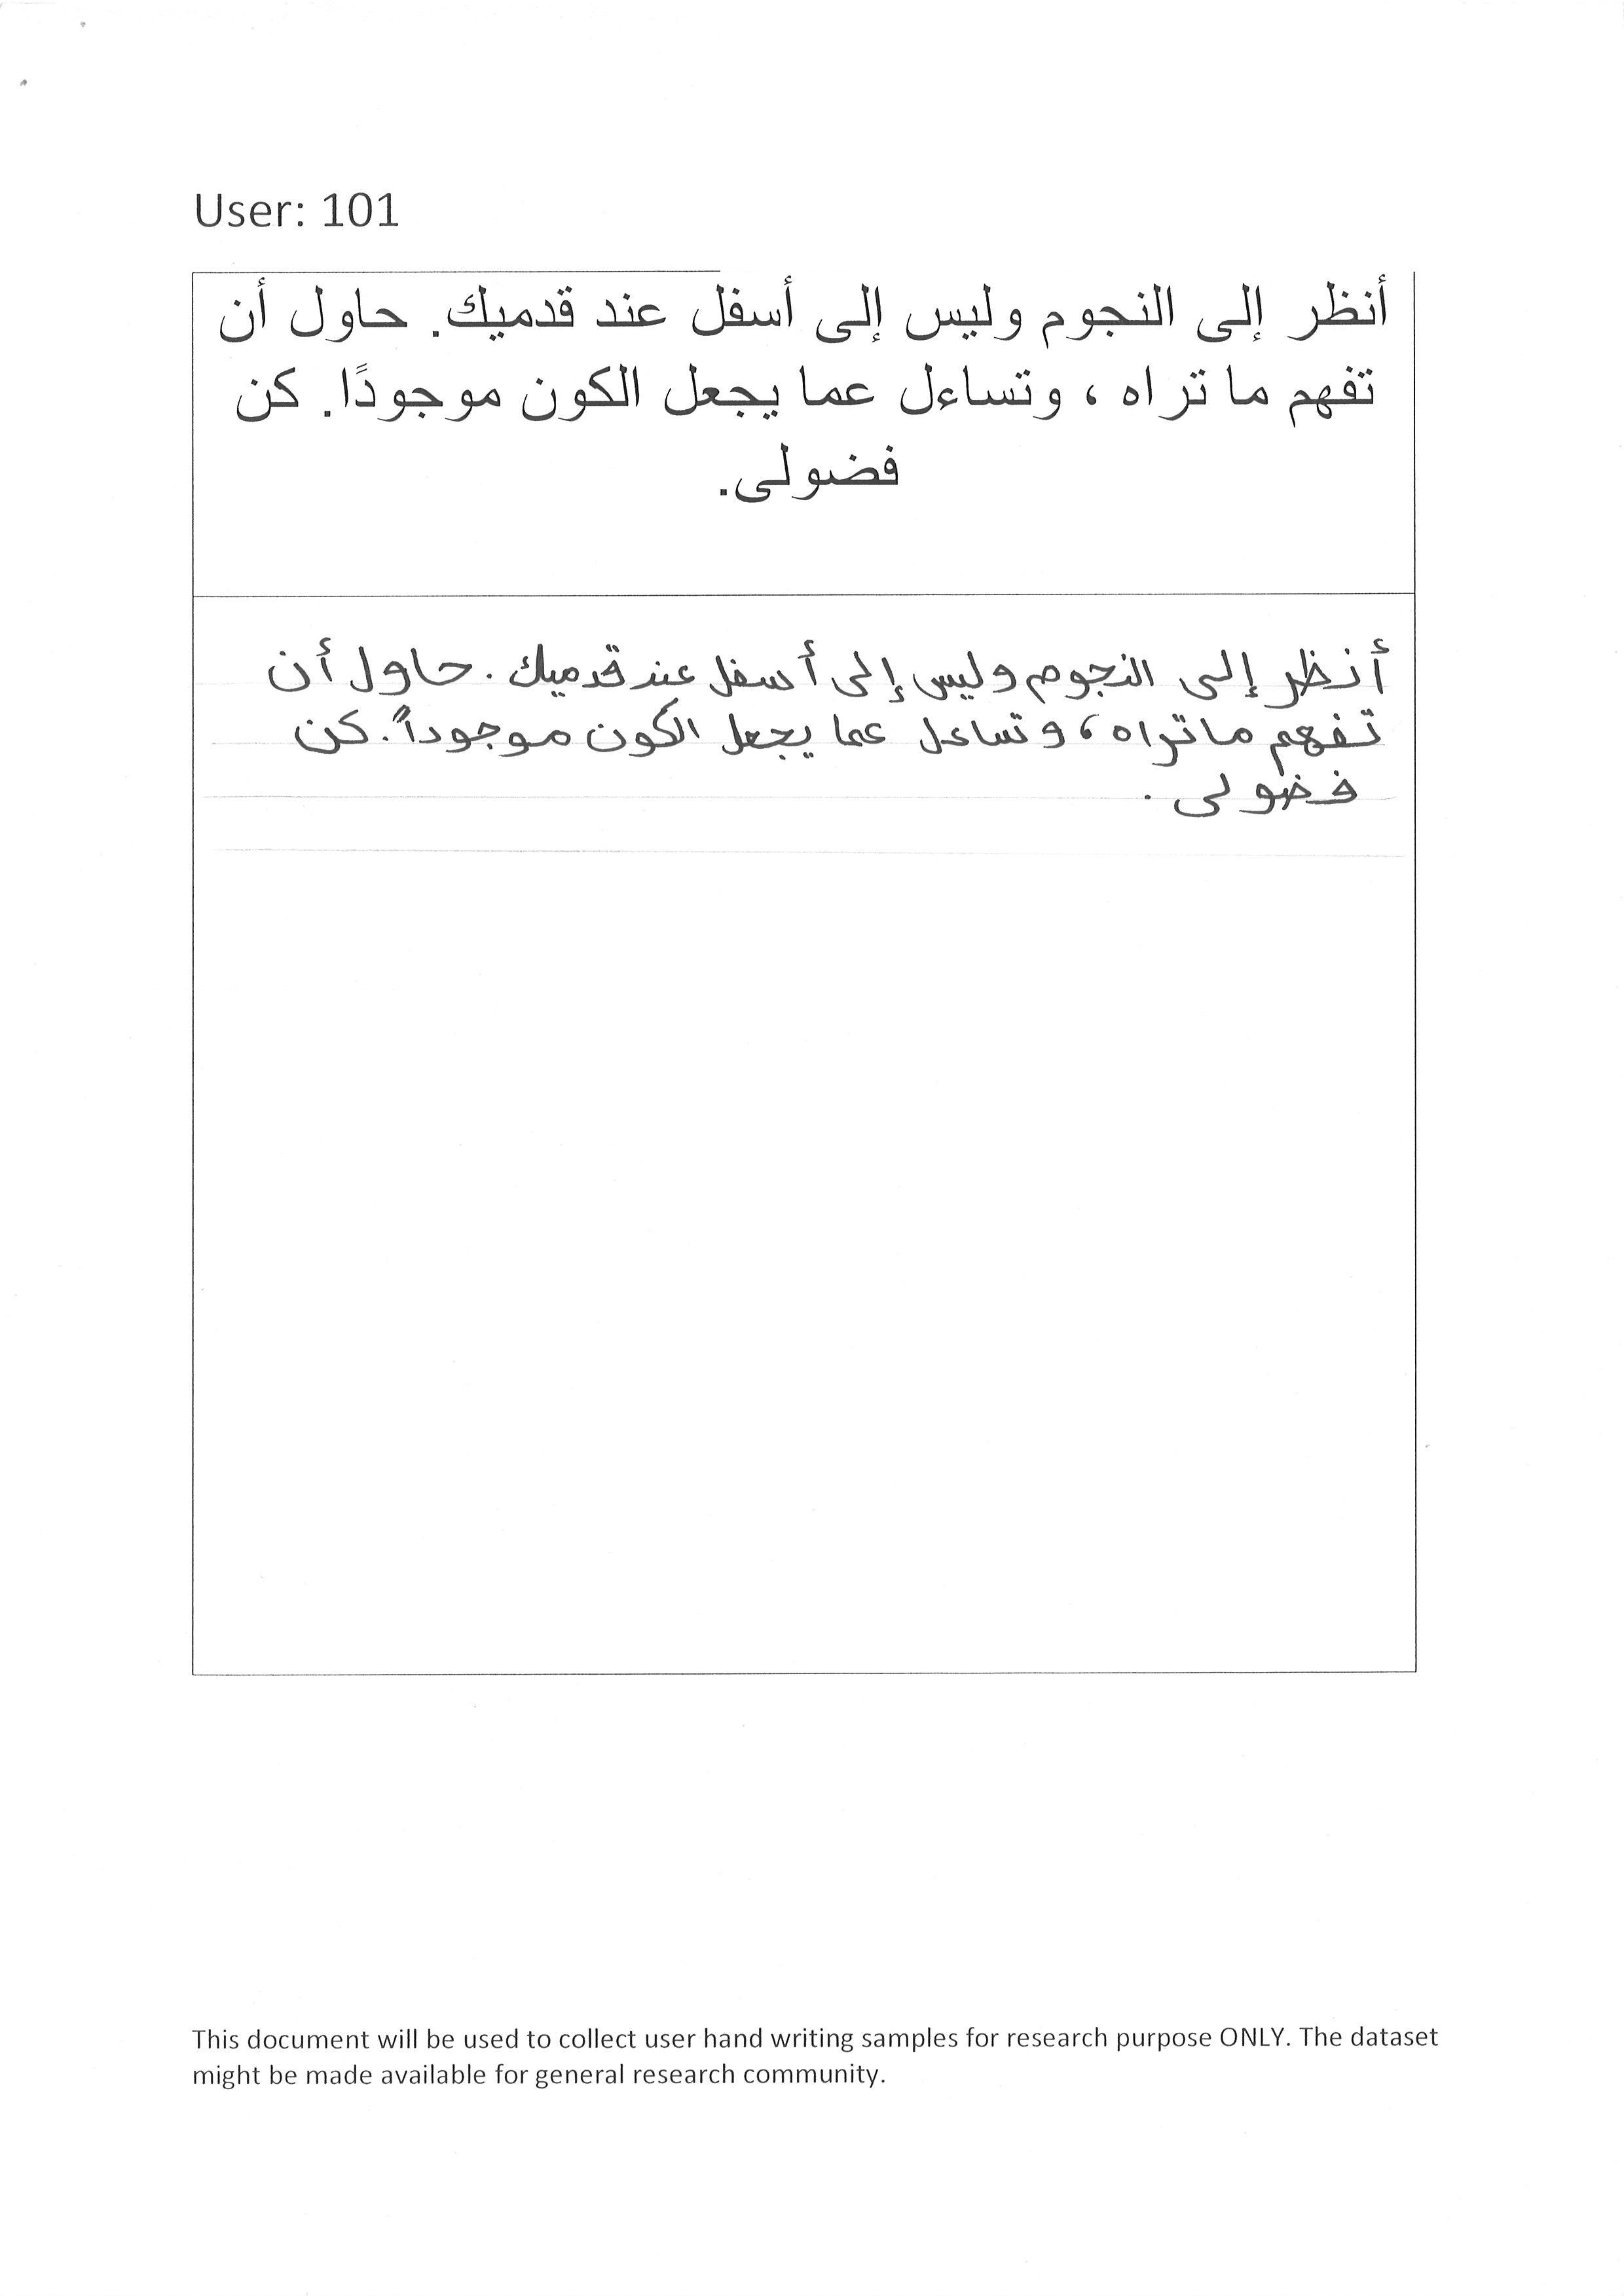 User: 101
أنظر إلى النجوم وليس إلى أسفل عند قدميك. حاول أن
تفهم ما تراه ، وتساءل عما يجعل الكون موجودًا. كن
فضولى.
أنظر إلى النجوم وليس إلى أسفل عند قدميك. حاول أن
تفهم ما تراه ، وتساءل عما يجعل الكون موجوداً. كن
فضولى .
This document will be used to collect user hand writing samples for research purpose ONLY. The dataset
might be made available for general research community.